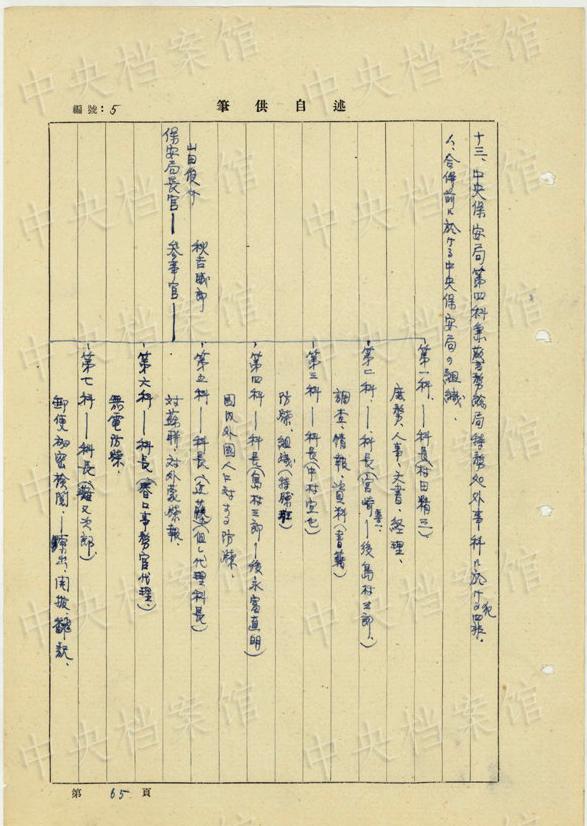 編號：5
述自供筆
十三、中央保安局第四科兼警務總局特務処外事科ニ於ケル犯罪
1、合併前ニ於ケル中央保安局ノ組織、
第一科、——科長(村田精三)
庶務、人事、文書、経理、
第二科——科長(宮崎——後島村三郎、)
調査、情報、資料(書籍)
第三科——科長(中村宣七)
防諜、組織(特諜班)
第四科——科長(島村三郎、——後永富直明)
國内外國人ニ対スル防諜、
第五科——科長(辻 但シ代理科長)
対蘇聯、対外蒙諜報、
第六科——科長(谷口事務官代理、)
無電防諜、
第七科——科長(又次郎)
郵便秘密検閲——開披
山田俊介
保安局長官——参事官
秋吉威郎
第 65 頁
中央档案馆